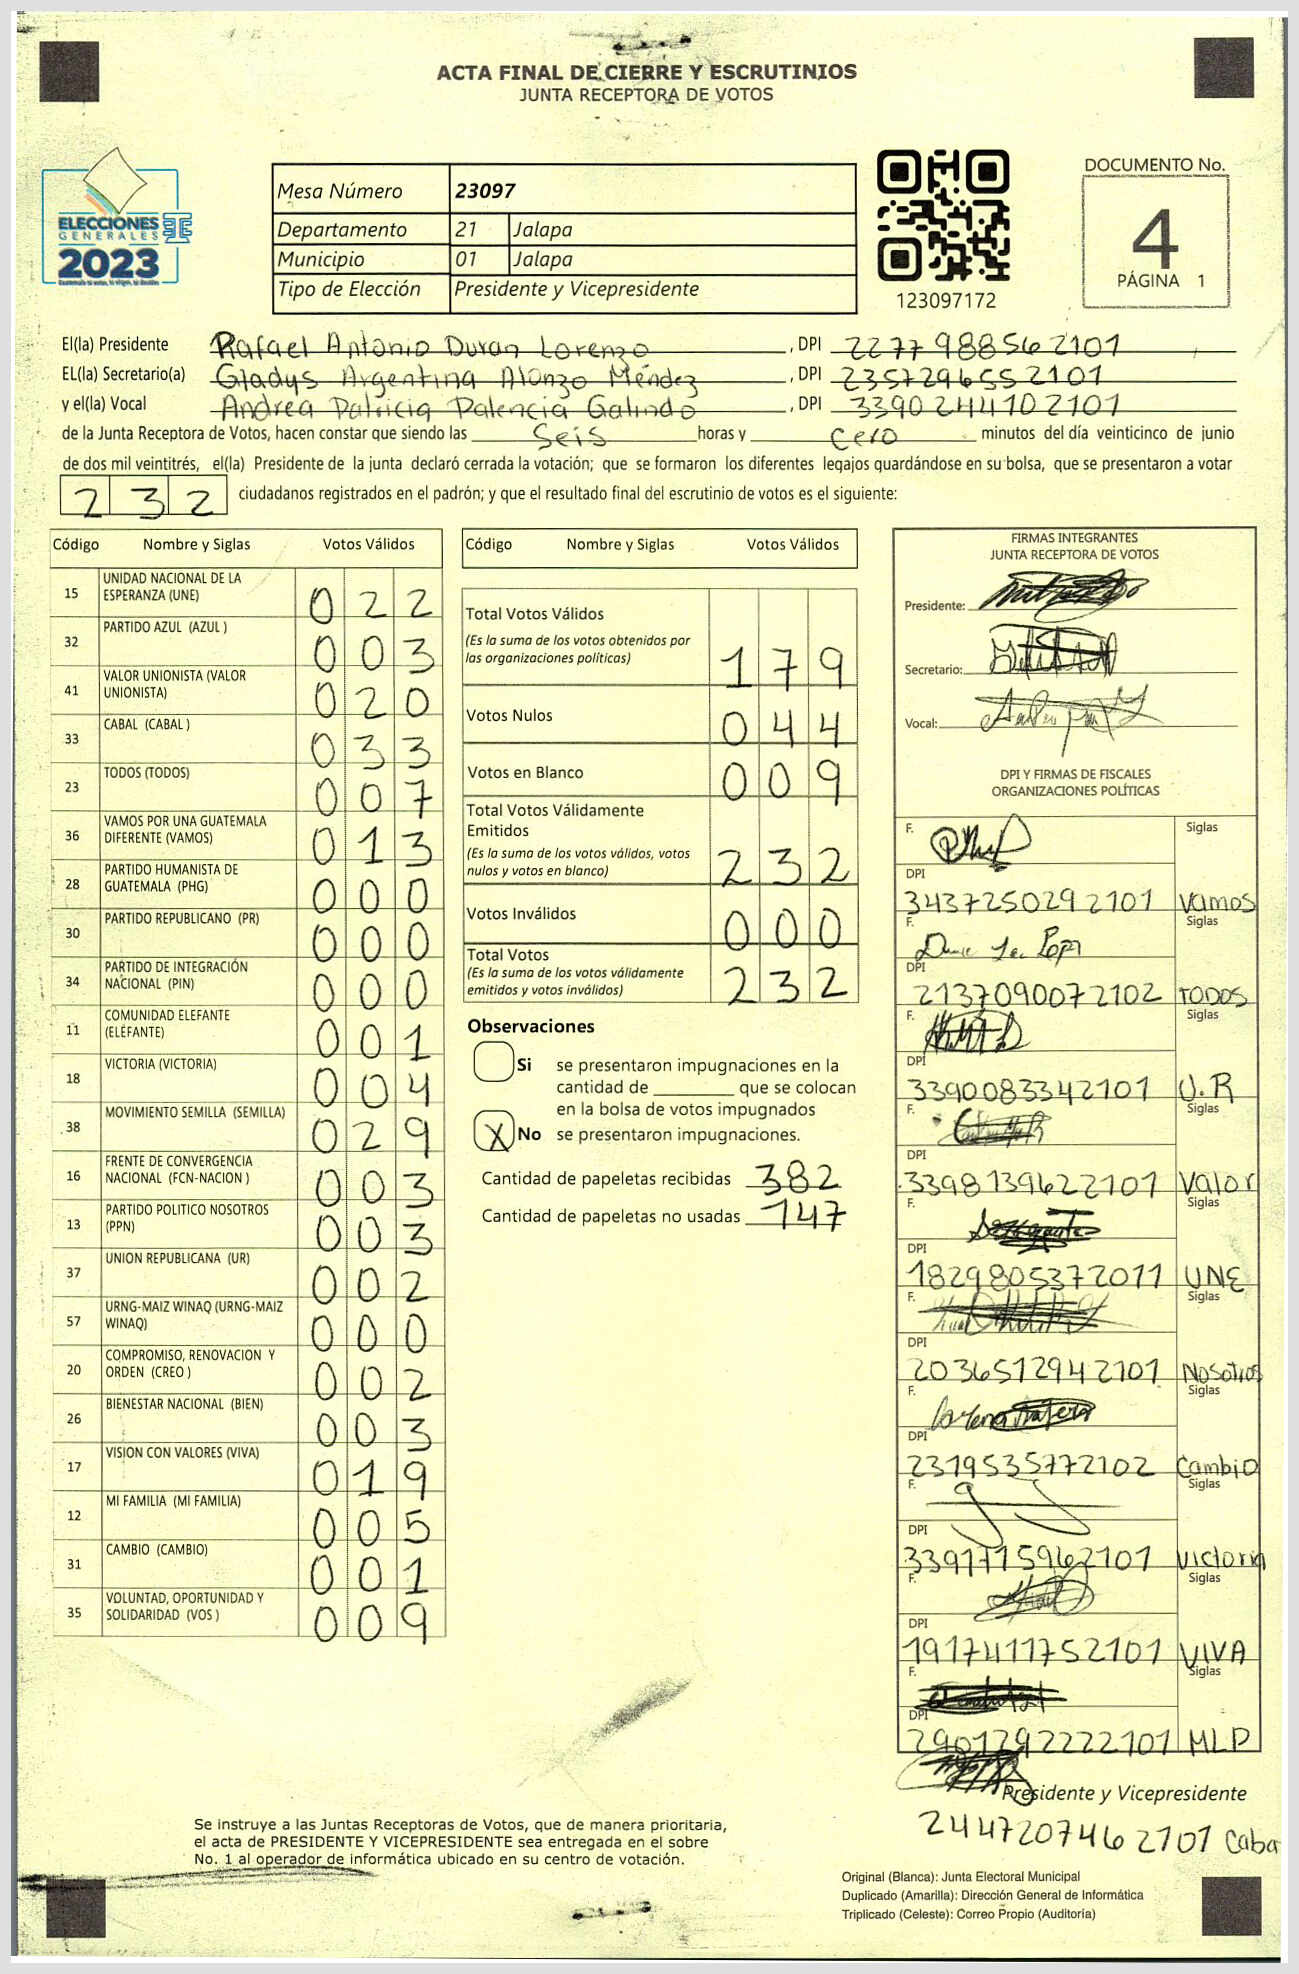 ACTA FINAL DE CIERRE Y ESCRUTINIOS
JUNTA RECEPTORA DE VOTOS
ELECCIONES
GENERALES
2023
Mesa Número 23097
Departamento 21 Jalapa
Municipio 01 Jalapa
Tipo de Elección Presidente y Vicepresidente
123097172
DOCUMENTO No.
4
PÁGINA 1
El(la) Presidente Rafael Antonio Duran Lorenzo , DPI 2277988562101
EL(la) Secretario(a) Gladys Argentina Alonzo Méndez , DPI 2357296552101
y el(la) Vocal Andrea Patricia Palencia Galindo , DPI 3390244102101
de la Junta Receptora de Votos, hacen constar que siendo las Seis horas y cero minutos del día veinticinco de junio
de dos mil veintitrés, el(la) Presidente de la junta declaró cerrada la votación; que se formaron los diferentes legajos quardándose en su bolsa, que se presentaron a votar
232 ciudadanos registrados en el padrón; y que el resultado final del escrutinio de votos es el siguiente:
Código Nombre y Siglas Votos Válidos
15 UNIDAD NACIONAL DE LA ESPERANZA (UNE) 022
32 PARTIDO AZUL (AZUL ) 003
41 VALOR UNIONISTA (VALOR UNIONISTA) 020
33 CABAL (CABAL ) 033
23 TODOS (TODOS) 007
36 VAMOS POR UNA GUATEMALA DIFERENTE (VAMOS) 013
28 PARTIDO HUMANISTA DE GUATEMALA (PHG) 000
30 PARTIDO REPUBLICANO (PR) 000
34 PARTIDO DE INTEGRACIÓN NACIONAL (PIN) 000
11 COMUNIDAD ELEFANTE (ELEFANTE) 001
18 VICTORIA (VICTORIA) 004
38 MOVIMIENTO SEMILLA (SEMILLA) 029
16 FRENTE DE CONVERGENCIA NACIONAL (FCN-NACION ) 003
13 PARTIDO POLITICO NOSOTROS (PPN) 003
37 UNION REPUBLICANA (UR) 002
57 URNG-MAIZ WINAQ (URNG-MAIZ WINAQ) 000
20 COMPROMISO, RENOVACION Y ORDEN (CREO ) 002
26 BIENESTAR NACIONAL (BIEN) 003
17 VISION CON VALORES (VIVA) 019
12 MI FAMILIA (MI FAMILIA) 005
31 CAMBIO (CAMBIO) 001
35 VOLUNTAD, OPORTUNIDAD Y SOLIDARIDAD (VOS ) 009
Código Nombre y Siglas Votos Válidos
Total Votos Válidos
(Es la suma de los votos obtenidos por
las organizaciones políticas) 179
Votos Nulos 044
Votos en Blanco 009
Total Votos Válidamente
Emitidos
(Es la suma de los votos válidos, votos
nulos y votos en blanco) 232
Votos Inválidos 000
Total Votos
(Es la suma de los votos válidamente
emitidos y votos inválidos) 232
Observaciones
Si se presentaron impugnaciones en la
cantidad de ________ que se colocan
en la bolsa de votos impugnados
X No se presentaron impugnaciones.
Cantidad de papeletas recibidas 382
Cantidad de papeletas no usadas 147
FIRMAS INTEGRANTES
JUNTA RECEPTORA DE VOTOS
Presidente:
Secretario:
Vocal:
DPI Y FIRMAS DE FISCALES
ORGANIZACIONES POLÍTICAS
F. Siglas
DPI
3437250292101 Vamos
F. Siglas
DPI
2137090072102 TODOS
F. Siglas
DPI
3390083342101 U.R
F. Siglas
DPI
3398139622101 Valor
F. Siglas
DPI
1829805372011 UNE
F. Siglas
DPI
2036512942101 Nosotros
F. Siglas
DPI
2319535772102 Cambio
F. Siglas
DPI
3391715962101 Victoria
F. Siglas
DPI
1917411752101 VIVA
F. Siglas
DPI
2901292222101 MLP
Presidente y Vicepresidente
2447207462101 Caba
Se instruye a las Juntas Receptoras de Votos, que de manera prioritaria,
el acta de PRESIDENTE Y VICEPRESIDENTE sea entregada en el sobre
No. 1 al operador de informática ubicado en su centro de votación.
Original (Blanca): Junta Electoral Municipal
Duplicado (Amarilla): Dirección General de Informática
Triplicado (Celeste): Correo Propio (Auditoría)